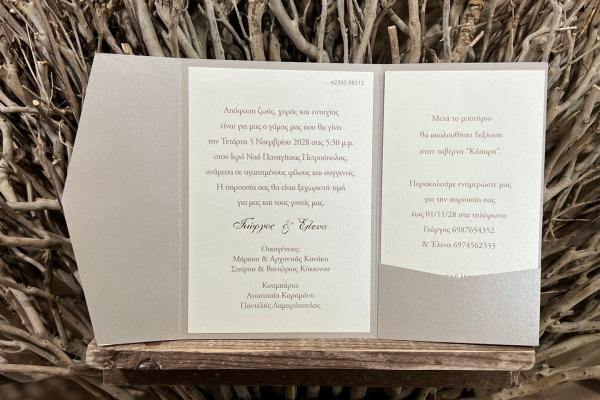 e2302 08212
Απόφαση ζωής, χαράς και ευτυχίας
είναι για μας ο γάμος μας που θα γίνει
την Τετάρτη 5 Νοεμβρίου 2028 στις 5:30 μ.μ.
στον Ιερό Ναό Παναγίτσας Πετρούπολης,
ανάμεσα σε αγαπημένους φίλους και συγγενείς.
Η παρουσία σας θα είναι ξεχωριστή τιμή
για μας και τους γονείς μας.
Γιώργος & Έλενα
Οικογένειες:
Μάρκου & Αρχοντιάς Κανάκη
Σπύρου & Βικτώριας Κόκκινου
Κουμπάροι:
Αναστασία Καραμάνη
Παντελής Λαμπρόπουλος
Μετά το μυστήριο
θα ακολουθήσει δεξίωση
στην ταβέρνα "Κάπαρη".
Παρακαλούμε ενημερώστε μας
για την παρουσία σας
έως 01/11/28 στα τηλέφωνα:
Γιώργος 6987654352
& Έλενα 6974562333